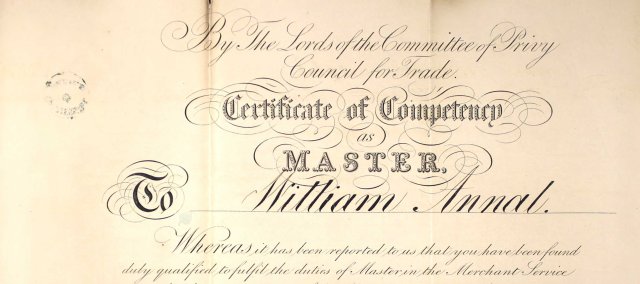 By The Lords of the Committee of Privy
Council for Trade.
Certificate of Competency
as
MASTER.
To William Annal.
Whereas it has been reported to us that you have been found
duly qualified to fulfil the duties of Master in the Merchant Service